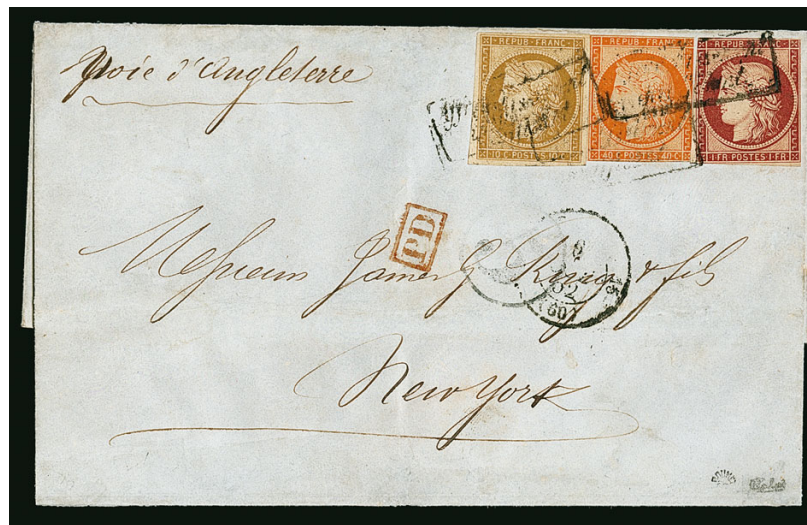 voie d'Angleterre
REPUB. FRANC.
10 C. POSTES 10 C.
REPUB. FRANC.
40 C. POSTES 40 C.
REPUB. FRANC.
1 FR. POSTES 1 FR.
PD
8
52
(60)
Messieurs James G King & fils
New York